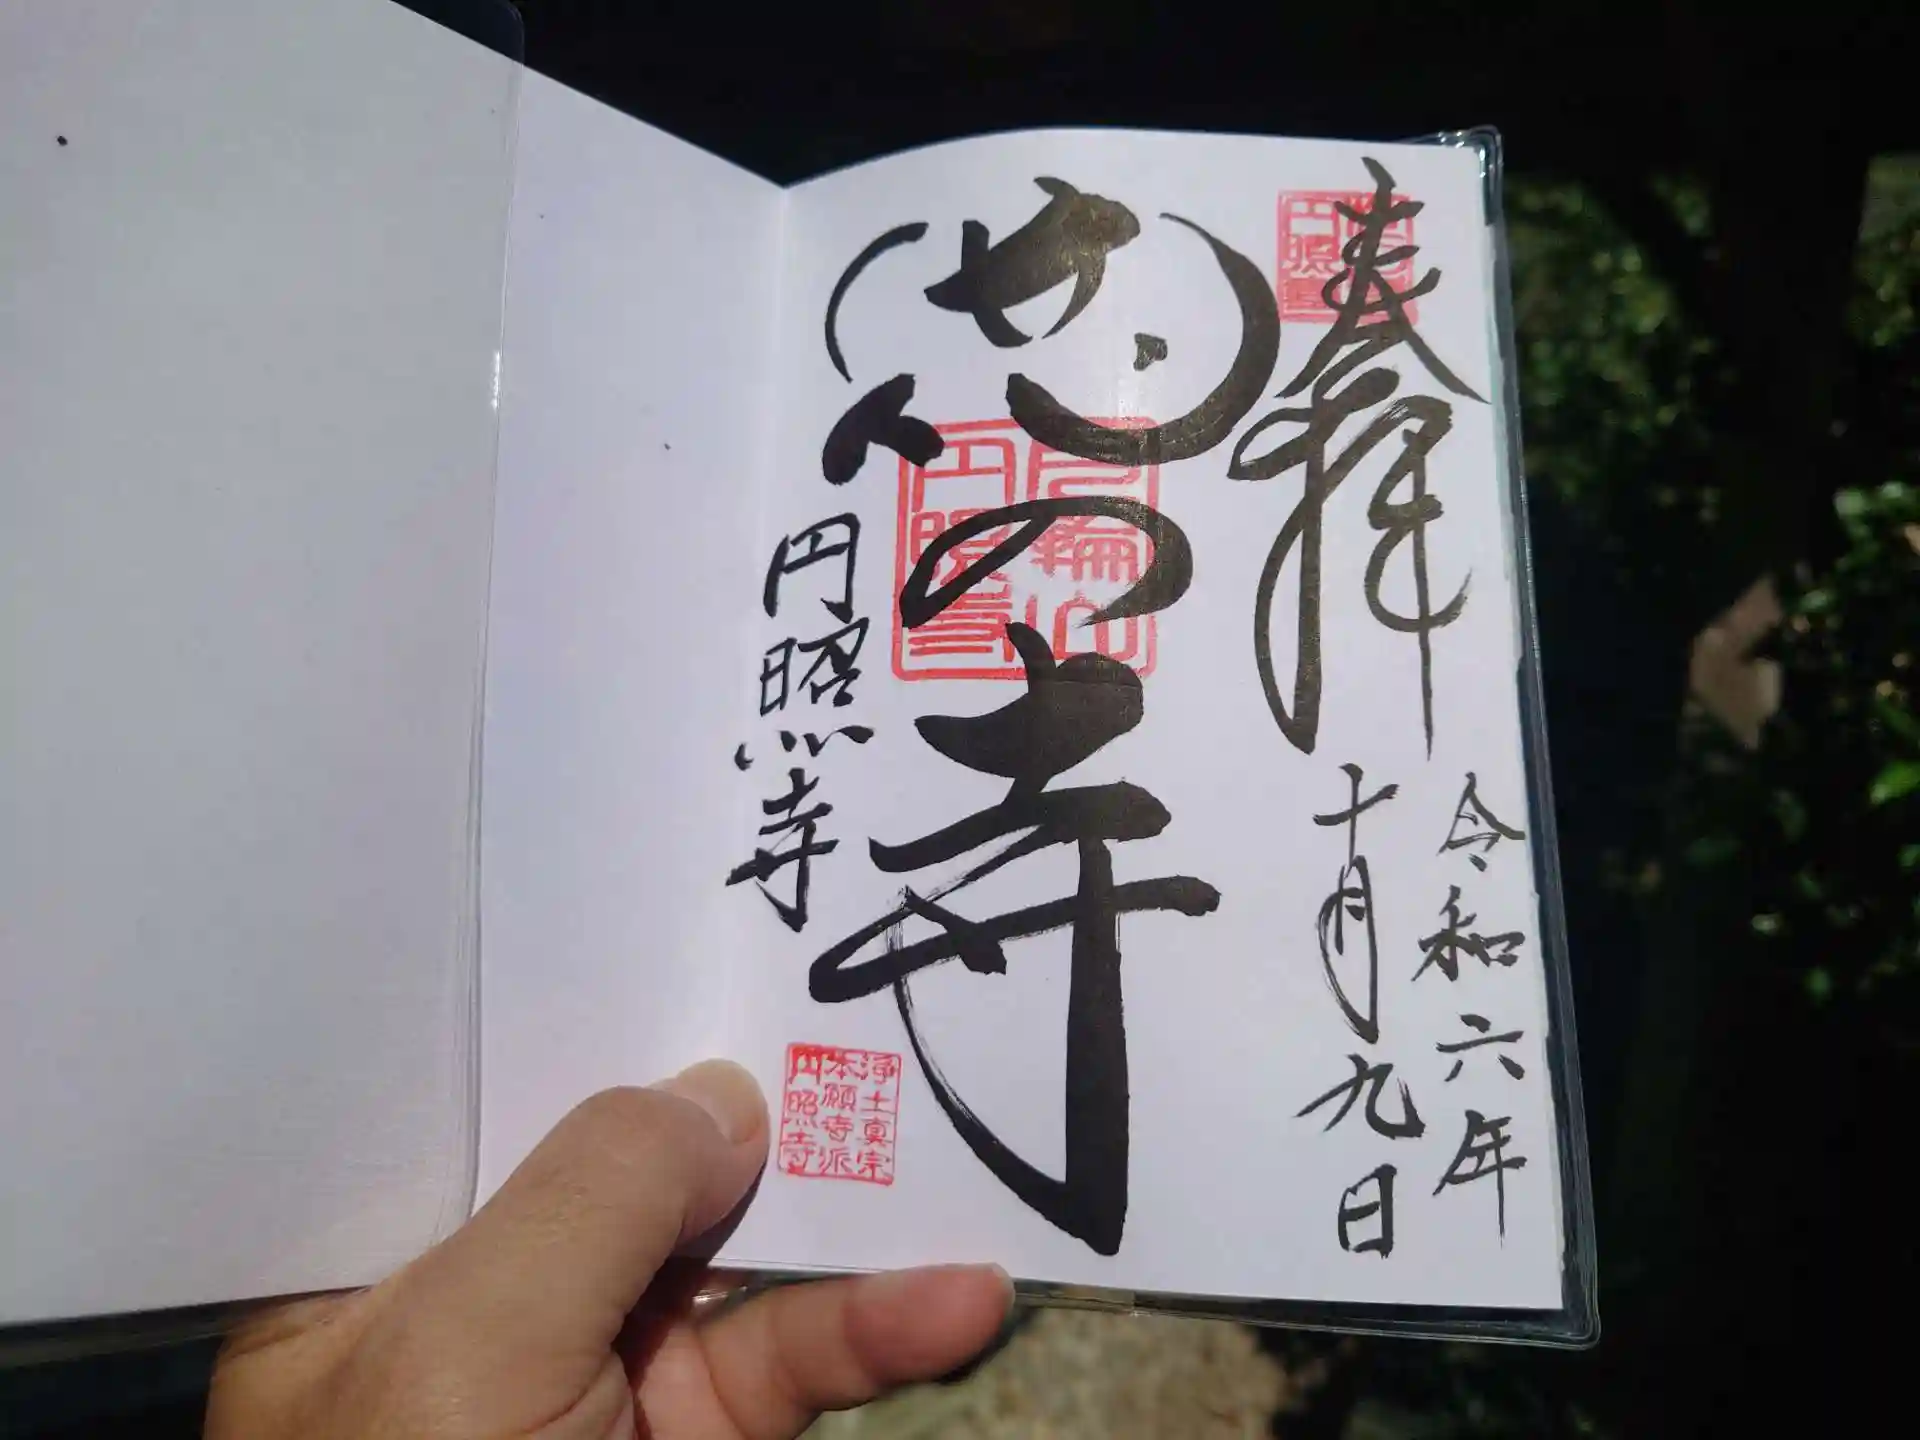 奉拝
令和六年
十月九日
の寺
輪山
円照寺
円照寺
浄土真宗
本願寺派
円照寺